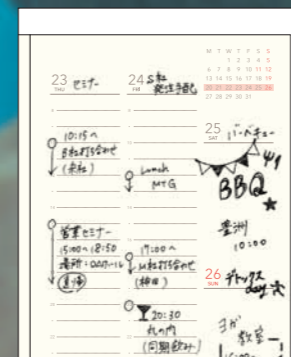 M T W T F S S
1 2 3 4 5
6 7 8 9 10 11 12
13 14 15 16 17 18 19
20 21 22 23 24 25 26
27 28 29 30 31
23 THU セミナー
10:15〜
B社打ち合わせ
(来社)
営業セミナー
15:00〜18:50
場所:
直帰
24 FRI S社
発注手配
Lunch
MTG
17:00〜
M社打ち合わせ
(神田)
20:30
丸の内
(同期飲み)
25 SAT バーベキュー
BBQ
豊洲
10:00
26 SUN デトックス
day
ヨガ
教室